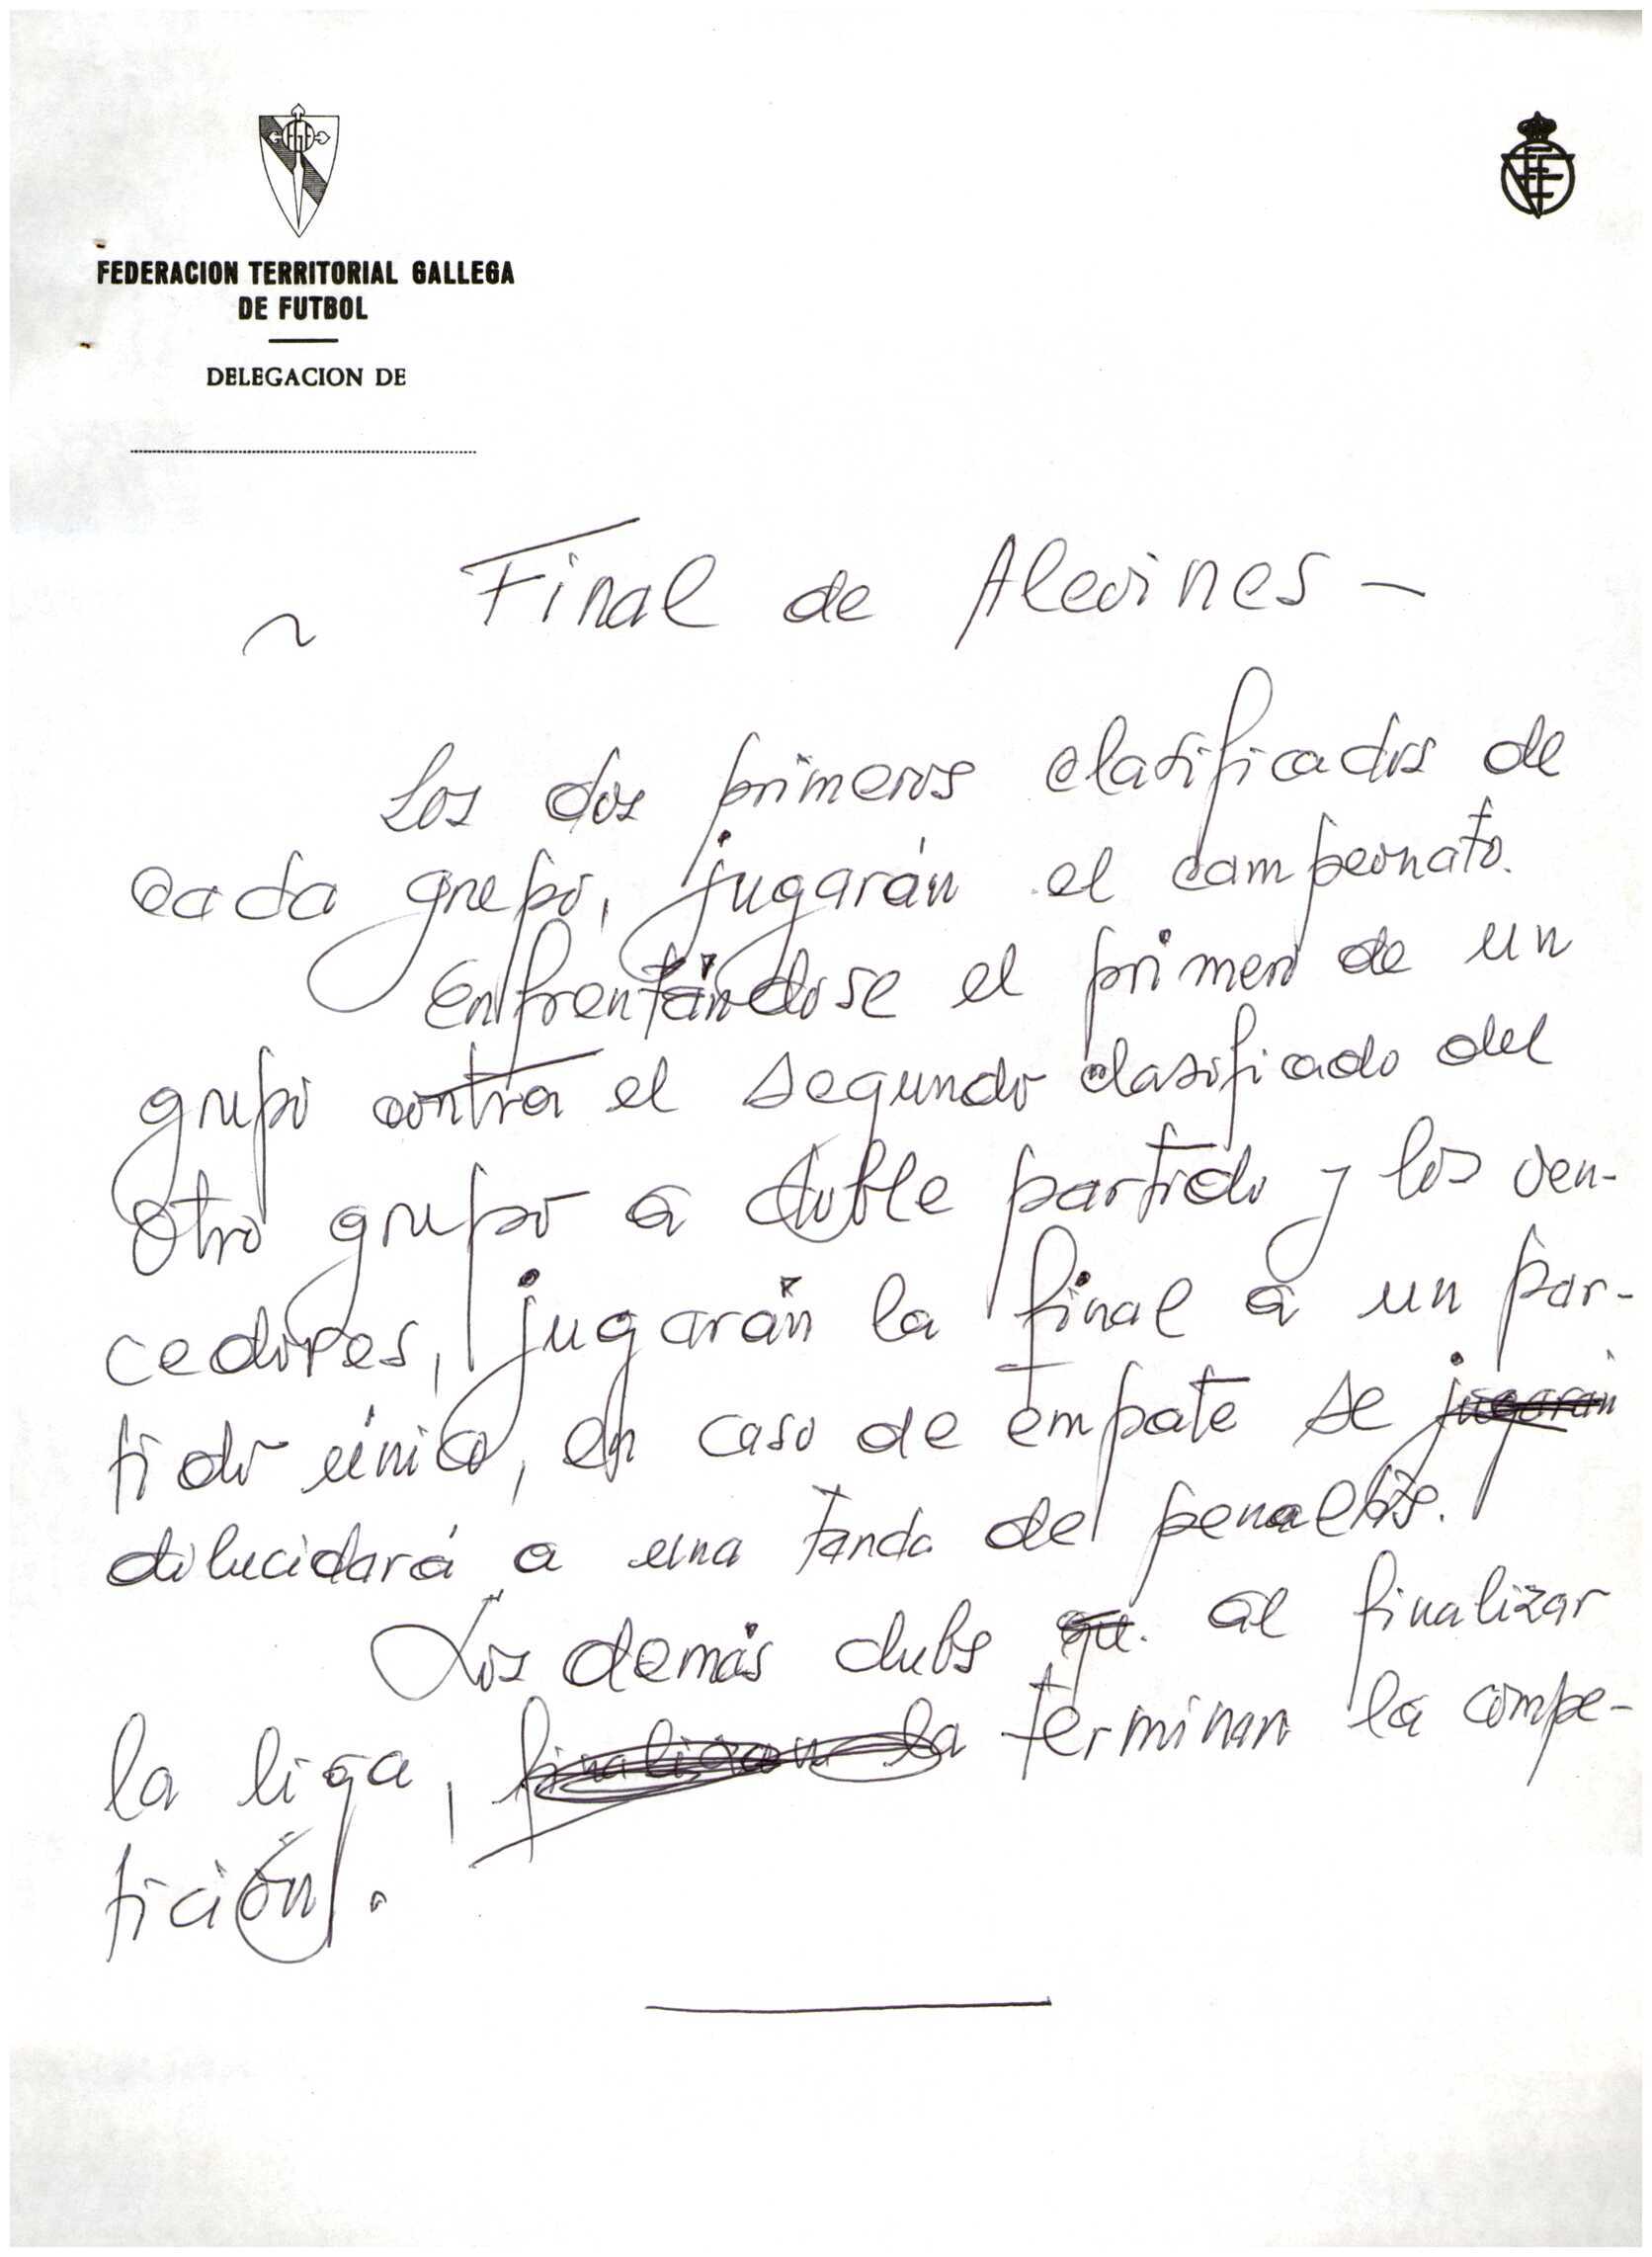 FGF
FEDERACION TERRITORIAL GALLEGA
DE FUTBOL
DELEGACION DE
~ Final de Alevines -
Los dos primeros clasificados de
cada grupo, jugarán el campeonato.
Enfrentándose el primero de un
grupo contra el segundo clasificado del
otro grupo a doble partido y los ven-
cedores, jugarán la final a un par-
tido único, en caso de empate se jugarán
dilucidará a una tanda de penaltis.
Los demás clubs que al finalizar
la liga, finalizan la terminan la compe-
tición.